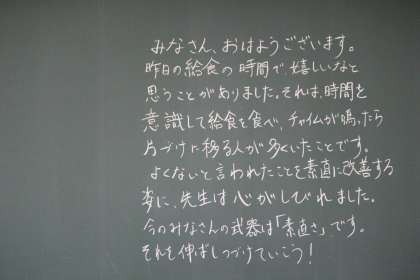 みなさん、おはようございます。
昨日の給食の時間で、嬉しいなと
思うことがありました。それは、時間を
意識して給食を食べ、チャイムが鳴ったら
片づけに移る人が多くいたことです。
よくないと言われたことを素直に改善する
姿に、先生は心がしびれました。
今のみなさんの武器は「素直さ」です。
それを伸ばしつづけていこう！